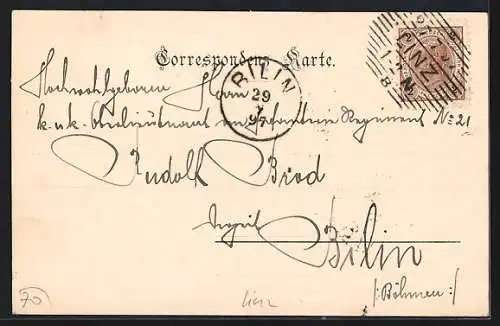 Correspondenz-Karte.
LINZ
BILIN
29
7
97
Hochwohlgeboren Herrn
k. u. k. Oberlieutenant im Infanterie Regiment No 21
Rudolf Brod
Bilin
/:Böhmen:/
70
Linz